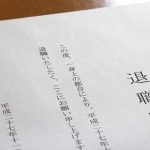 退職
この度、一身上の都合により、平成二
退職いたしたく、ここにお願い申し上げます
平成二十七年十